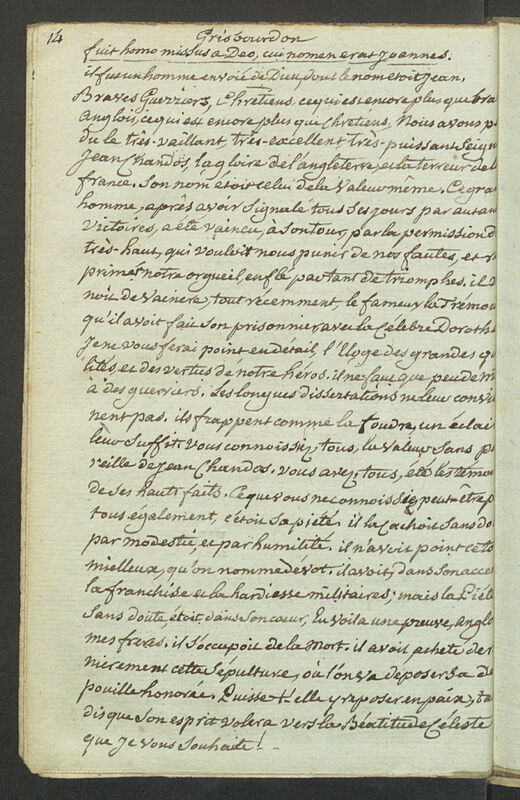 14
Grisbourdon
fuit homo missus a Deo, cui nomen erat joannes.
il fut un homme envoié de Dieu dont le nom étoit jean,
Braves Guerriers, Chrétiens, ce qui est encore plus que bra
Anglois, ce qui est encore plus que Chretiens. Nous avons p
du le très-vaillant, très-excellent très-puissant Seign
Jean Chandos, la gloire de l'angleterre, et la terreur de l
france. Son nom étoit celui de la Valeur même. Ce gra
homme, après avoir Signalé tous Ses jours par autan
Victoires, a été vaincu, à Son tour, par la permission d
très-haut, qui vouloit nous punir de nos fautes, et r
primer notre orgueil, enflé par tant de triomphes. il v
noit de vaincre, tout récemment, le fameux la Trémou
qu'il avoit fait Son prisonnier avec la Célébre Doroth
Je ne vous ferai point en détail, l'Eloge des grandes qu
lités et des vertus de notre héros. il ne faut que peu de m
à des guerriers. Les longues dissertations ne leur convi
nent pas. ils frappent comme la foudre, un éclai
leur Suffit. Vous connoissez, tous, la valeur Sans p
reille de Jean Chandos. Vous avez, tous, été les témoi
de Ses hauts faits. Ce que vous ne connoissez peut-être p
tous également, c'étoit Sa piété. il la Cachoit Sans do
par modestie, et par humilité. il n'avoit point ce to
mielleux, qu'on nomme dévot. il avoit, dans Son acce
la franchise et la hardiesse militaires; mais la Piété
Sans doute, étoit, dans Son coeur, En voila une preuve, anglo
mes freres. il S'occupoit de la Mort. il avoit acheté der
nièrement cette Sépulture, où l'on va déposer Sa dé
pouille honorée. Puisse-t-elle y reposer en paix, ta
dis que Son esprit volera vers la Béatitude Céleste
que Je vous Souhaite!